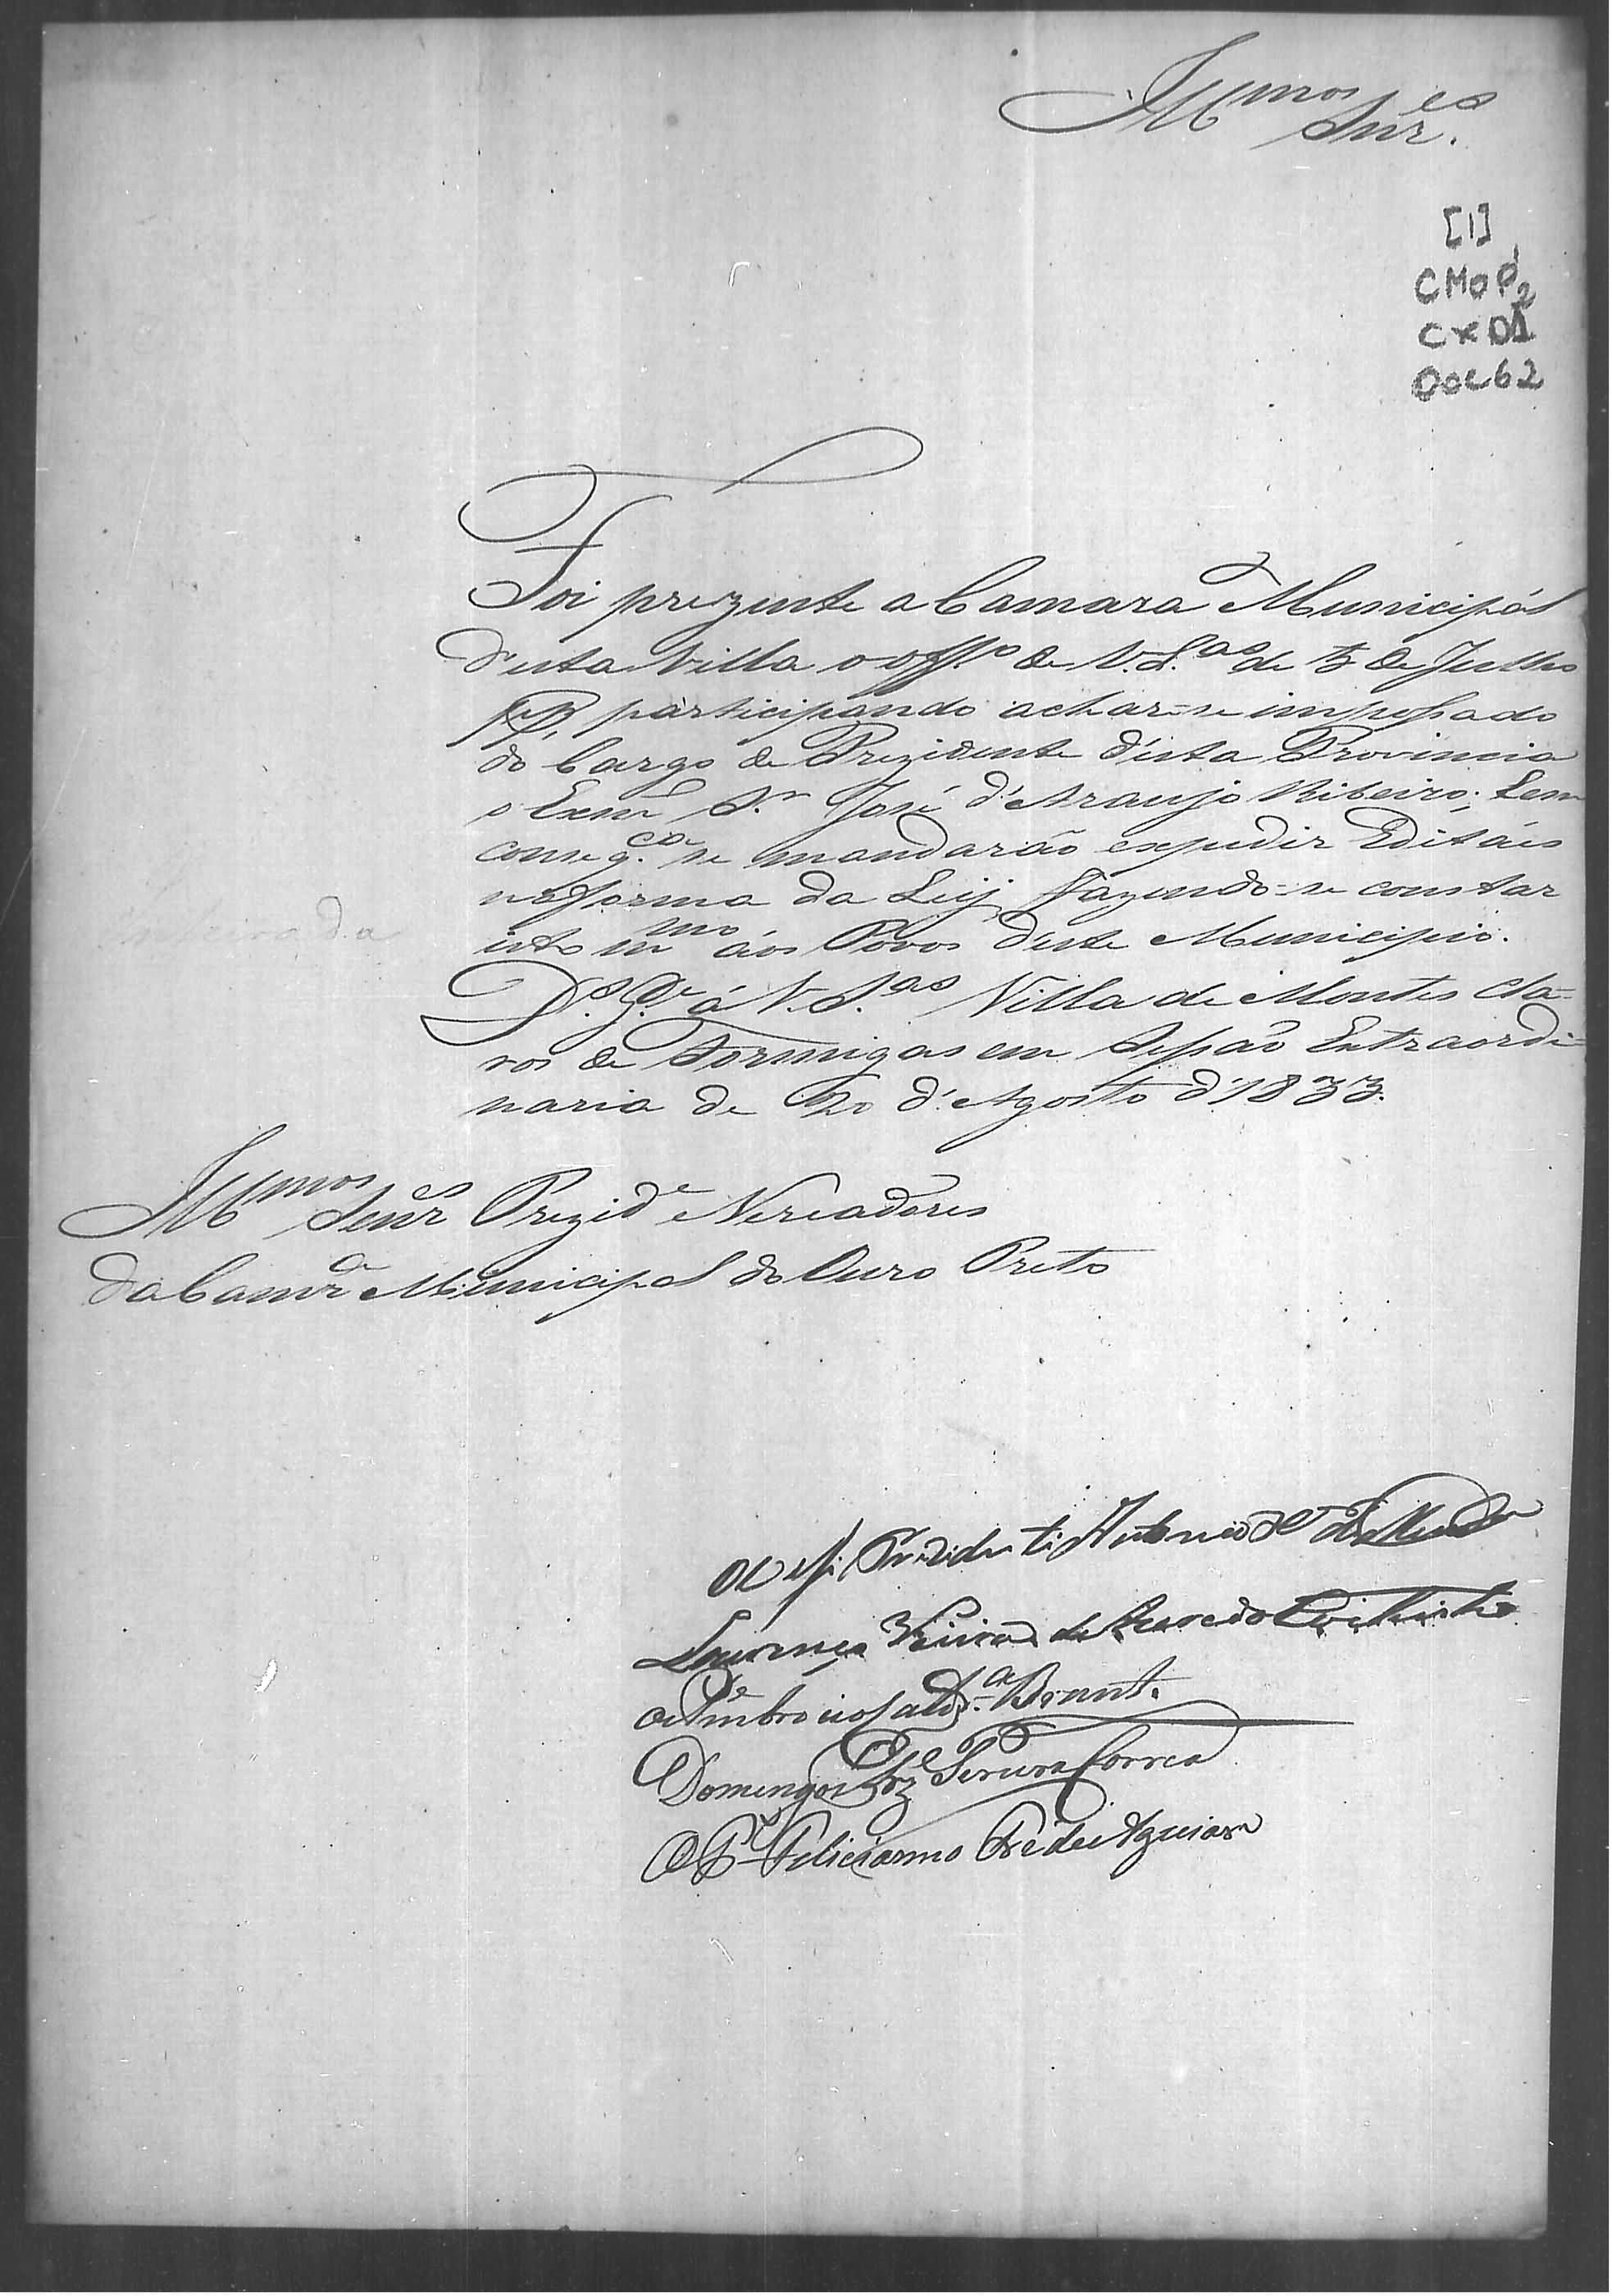 Illmos Snres.
[1]
CMOP2
CX01
Doc62
Foi prezente a Camara Municipál
d'esta Villa o offo de V. Sas de 5 de Julho
pp. participando achar-se impossado
do Cargo de Prezidente d'esta Provincia
o Exmo Sr José d'Araujo Ribeiro; e em
conseqcia se mandarão expedir Editáes
na forma da Ley, fazendo-se constar
isto mmo áos Povos d'este Municipio.
Ds Ge á V. Sas Villa de Montes Cla=
ros de Formigas em Sessão Extraordi=
naria de 20 d'Agosto d'1833.
Illmos Senres Prezide e Vereadores
da Camra Municipal do Ouro Preto
Prezidente Antonio
Lourenço Vieira de Azeredo Coutinho
Ambrozio Caldra Brant.
Domingos Joze Pereira Correa
O Pe Feliciano Fr de Aguiar